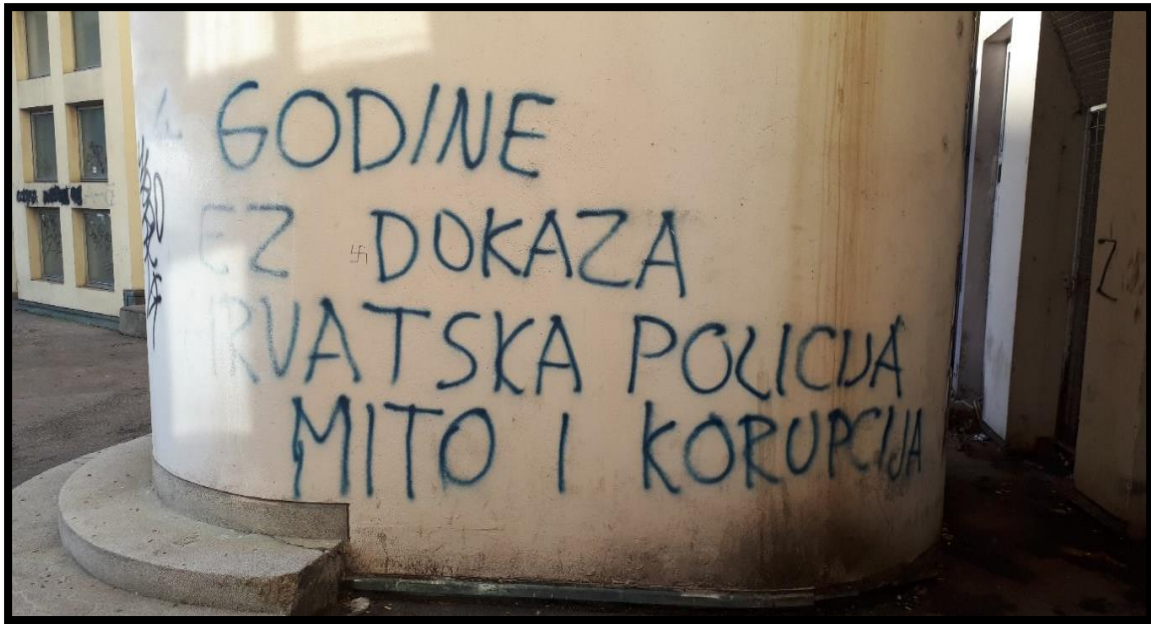 GODINE
EZ DOKAZA
HRVATSKA POLICIJA
MITO I KORUPCIJA